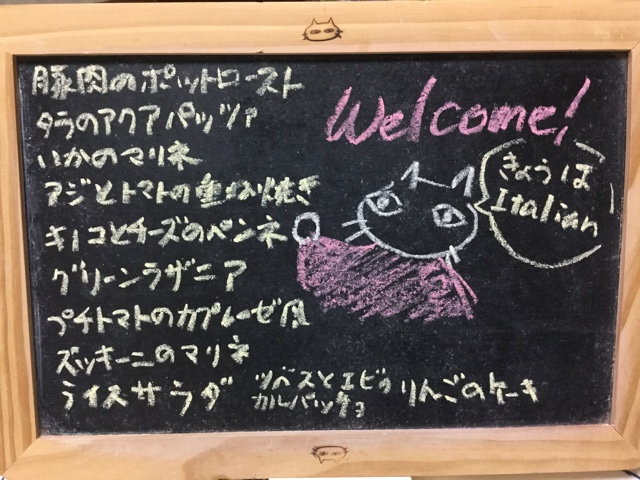 豚肉のポットロースト
タラのアクアパッツァ
いかのマリネ
アジとトマトの重ね焼き
キノコとチーズのペンネ
グリーンラザニア
プチトマトのカプレーゼ風
ズッキーニのマリネ
ライスサラダ
Welcome!
きょうは
Italian
カルパッチョ
りんごのケーキ